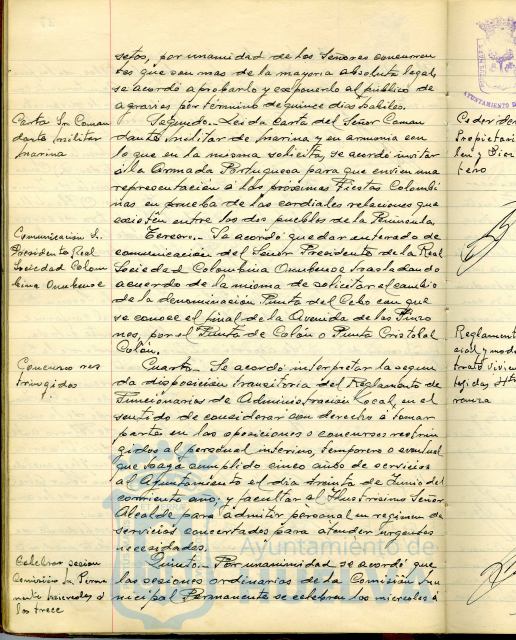 setos, por unanimidad de los Señores concurren
tes que son mas de la mayoria absoluta legal,
se acordó aprobarlo y exponerlo al público de
agravios por término de quince dias habiles.
Carta Sr. Coman
dante militar
marina
Segundo. Leida carta del Señor Coman
dante militar de marina y en armonia con
lo que en la misma solicita, se acordó invitar
á la Armada Portuguesa para que envien una
representación á las próximas Fiestas Colombi
nas en prueba de las cordiales relaciones que
existen entre los dos pueblos de la Peninsula.
Comunicación Sr.
Presidente Real
Sociedad Colom
bina Onubense
Tercero. Se acordó quedar enterado de
comunicación del Señor Presidente de la Real
Sociedad Colombina Onubense trasladando
acuerdo de la misma de solicitar el cambio
de la denominación Punta del Cebo con que
se conoce el final de la Avenida de los Pinzo
nes, por el Punta de Colón o Punta Cristobal
Colón.
Concurso res
tringidos
Cuarto. Se acordó interpretar la segun
da disposición transitoria del Reglamento de
Funcionarios de Administración Local, en el
sentido de considerar con derecho á tomar
parte en las oposiciones o concursos restrin
gidos al personal interino, temporero o eventual
que haya cumplido cinco años de servicios
al Ayuntamiento el dia treinta de Junio del
corriente año, y facultar al Ilustrisimo Señor
Alcalde para admitir personal en regimen de
servicios concertados para atender urgentes
necesidades.
Celebrar sesion
Comisión M. Perma
nente miercoles á
las trece
Quinto. Por unanimidad se acordó que
las sesiones ordinarias de la Comisión Mu
nicipal Permanente se celebren los miercoles á
Ayuntamiento de
Ceder
Propietari
Reglament